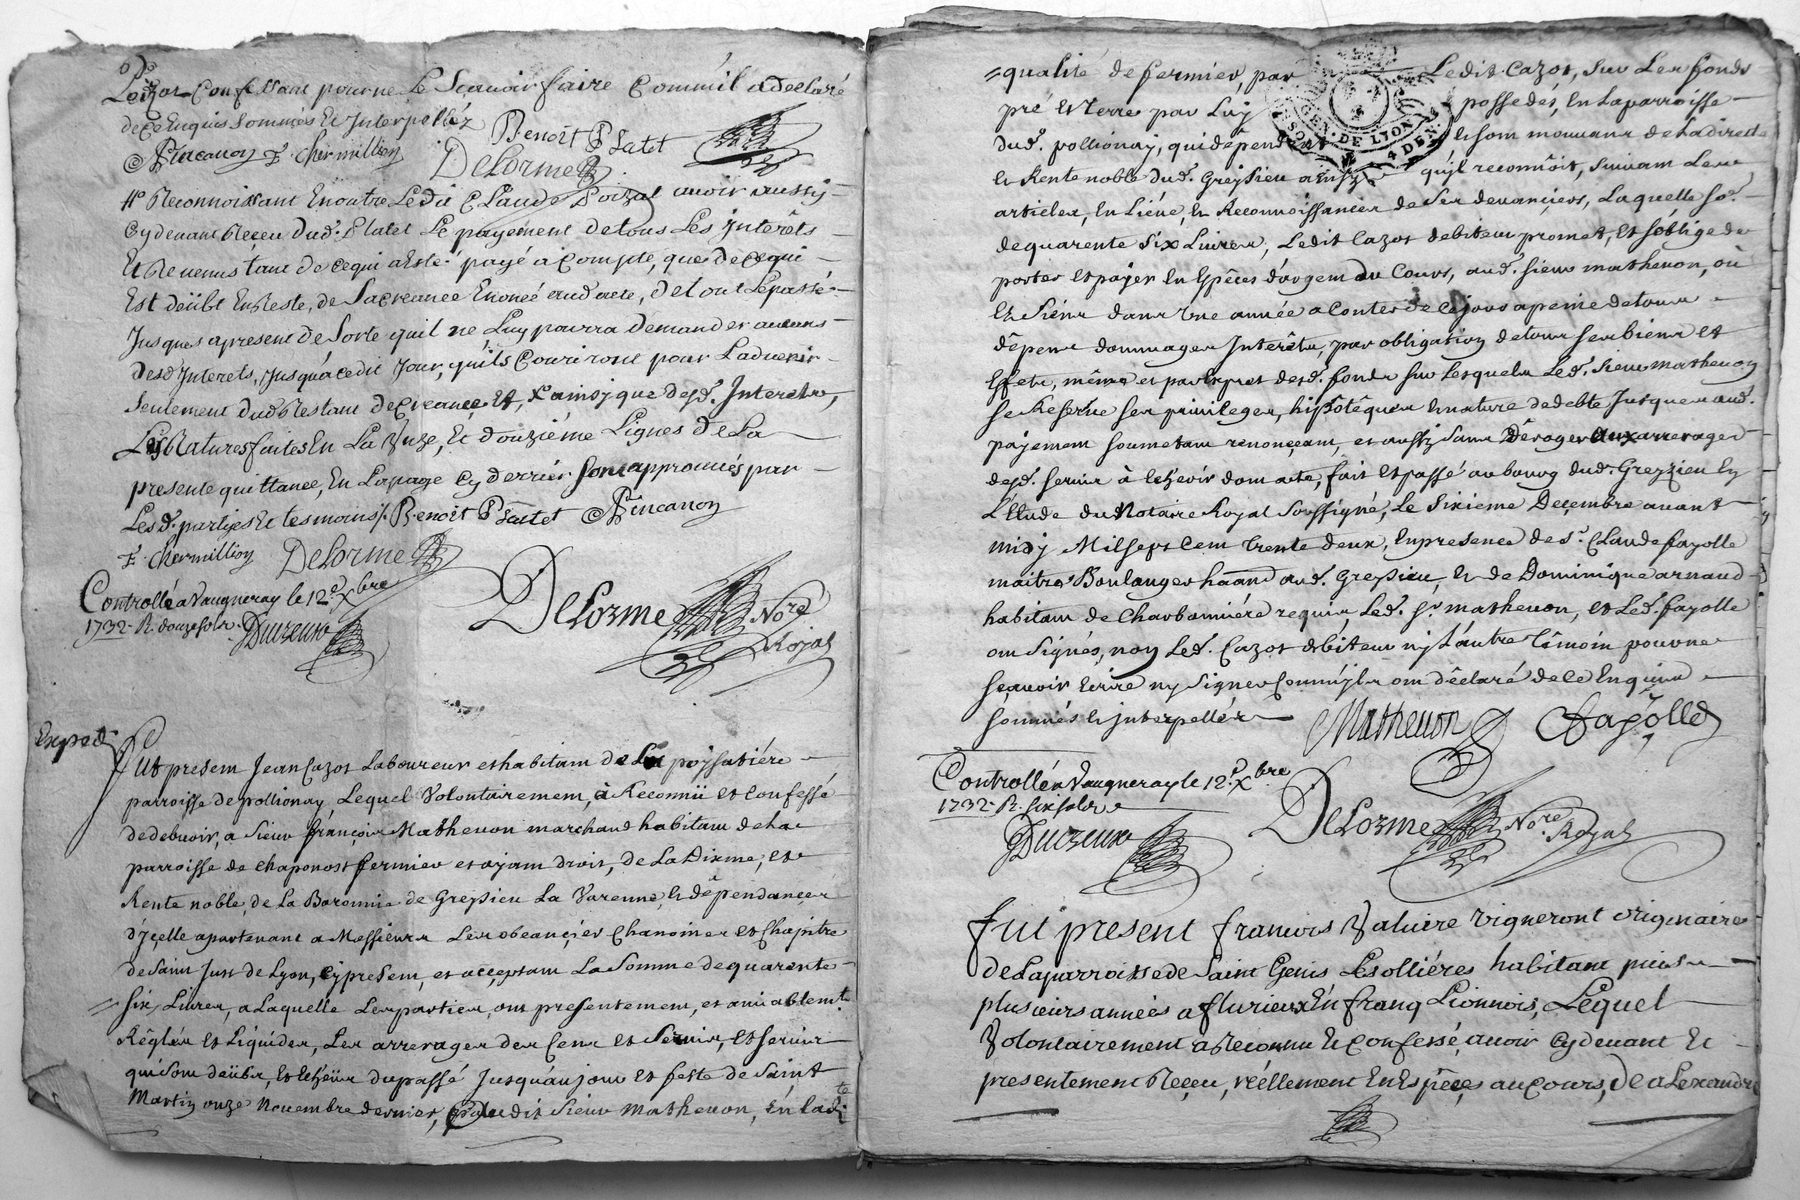 Loizat Confessant pour ne le Scavoir faire Comm'il a declaré
de ce Enquis Sommés Et Interpellés
Benoît Platet
Pincanon F. Chermillion DeLorme
Reconnoissant En outre Ledit Claude Loizat avoir aussy
Cydevant Receu dud. Platet Le payement de tous Les Interêts
Et Revenus tant de ce qui a Esté payé a Compte, que de ce qui
Est dëübt En Reste, de Sa creance Enoncé aud acte, de tout Le passé
Jusques apresent de Sorte quil ne Luy pourra demander aucuns
desd Interets, Jusquà cedit Jour, quils Couriront pour Ladvenir
Seulement dud Restant de Creance Et, ainsy que desd. Interets,
Les Ratures faites En La Unze, Et douzième Lignes de La
presente quittance, En La page Cy derrier Sont approuvés par
Les d. partyes Et tesmoins /. Benoît Platet Pincanon
F. Chermillion DeLorme
Controllé a Vaugneray le 12e Xbre
1732. R. douze sols.
Ducreux
DeLorme Nore
Royal
Exped
Fut present Jean Cazot Laboureur et habitant de La poyssatière
parroisse de pollionay, Lequel Volontairement, à Reconnü et confessé
de debvoir, a Sieur françois Mathevon marchand habitant de la
parroisse de chaponost fermier et ayant droit, de La Dixme, et
Rente noble, de La Baronnie de Gresieu La Varenne, et dêpendances
d'ycelle apartenant a Messieurs Les obeançiers Chanoines et Chapitre
de Saint Just de Lyon, cy present, et acceptant La Somme de quarante
Six, Livres, a Laquelle Les parties, ont presentement, et amiablemt.
Rêglés et Liquidés, Les arrerages des Cens et Servis, et servis
qui sont deübs, Et Echeüs du passé Jusqu'au jour et feste de Saint
Martin onze Novembre dernier, audit Sieur Mathevon, En Ladte
qualité de fermier, par Ledit Cazot, Sur Les fonds
pré Et terres par Luy possedés, En Laparroisse
dud. pollionay, qui dêpendent et sont mouvant de La directe
et Rente noble dud. Gresieu ainsy quyl reconnoit, suivant Les
articles, En Liéve, et Reconnoissances de Ses devançiers, Laquelle So.
de quarente Six Livres, Ledit Cazot debiteur promet, Et s'oblige de
porter et payer En Espêces d'argent du Cours, aud. Sieur mathevon, où
Es Siens dans Une année a Conter de Cejour a peine de tous
dêpens dommages Interêts, par obligation de tous ses biens et
Effets, mêmes et par Expres desd. fonds Sur Lesquels Led. Sieur Mathevon
se Reserve ses privileges, hippotêques et nature de debte Jusques aud.
payement soumetant renonçeant, et aussy Sans Dêroger aux arrerages
desd. servis à Echevir dont acte, fait et passé au bourg dud. Grezieu En
L'Etude du Notaire Royal Soussigné, Le Sixieme Deçembre avant
midy Mil sept Cent trente deux, En presence de Sr. Claude fayolle
maitre Boulanger habitant aud. Gresieu, et de Dominique arnaud
habitant de Charbonniére requis, Led. Sr mathevon, et Led. fayolle
ont signés, non Led. Cazot debiteur ny L'autre têmoin pour ne
sçavoir Ecrire ny Signer Comm'ils ont dêclaré de ce Enquis
sommés et interpellés
Mathevon Fayolle
Controllé a Vaugneray le 12e Xbre
1732. R. six sols
Ducreux
DeLorme Nore. Royal
GEN. DE LYON 4 DEN.
fut present francois Valuire vigneront originaire
de Laparroisse de Saint Genis Lesolliéres habitant puis
plusieurs années a flurieux En franq Lionnois, Lequel
Volontairement a Reconnu Et Confessé, avoir Cydevant Et
presentement Reçeu, réellement En Espêces au Cours, de alexandre